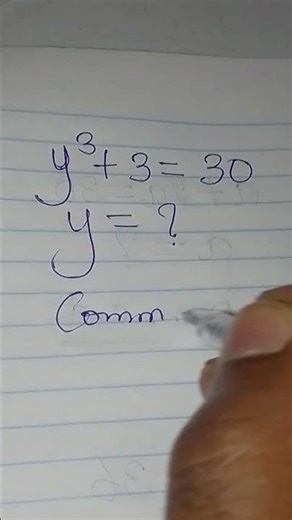 y³+3=30
y=?
Comm